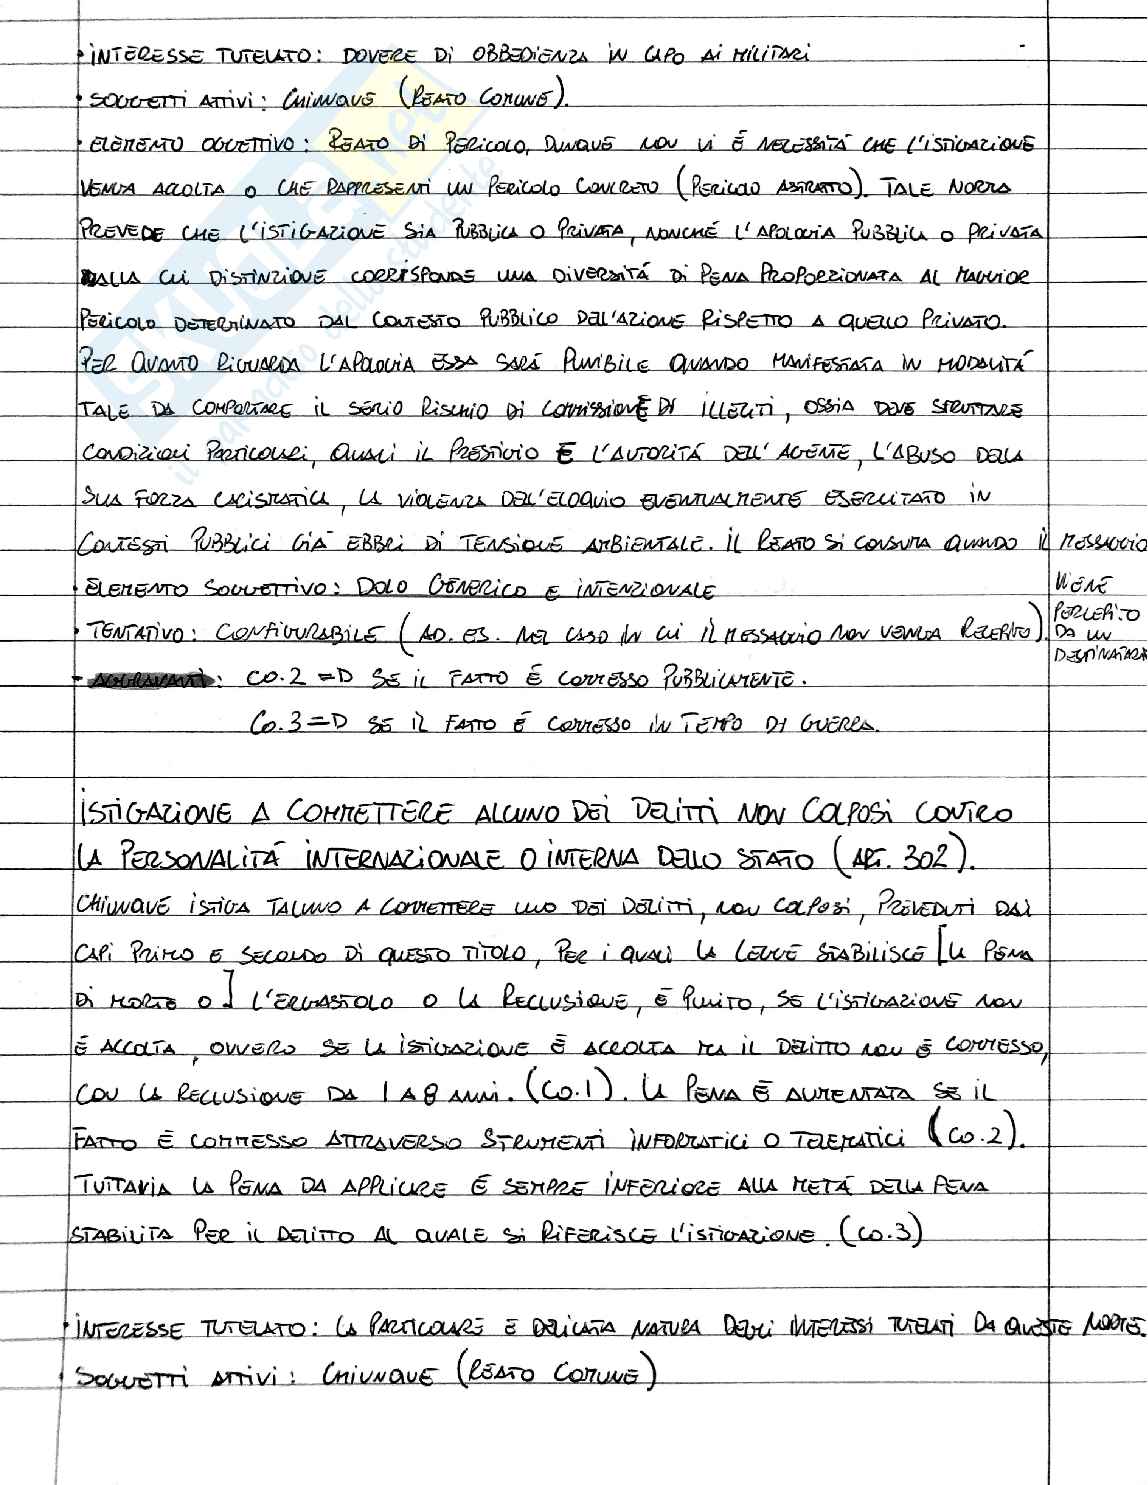 • INTERESSE TUTELATO: DOVERE DI OBBEDIENZA IN CAPO AI MILITARI
• SOGGETTI ATTIVI: CHIUNQUE (REATO COMUNE).
• ELEMENTO OGGETTIVO: REATO DI PERICOLO, DUNQUE NON VI È NECESSITÁ CHE L'ISTIGAZIONE
VENGA ACCOLTA O CHE RAPPRESENTI UN PERICOLO CONCRETO (PERICOLO ASTRATTO). TALE NORMA
PREVEDE CHE L'ISTIGAZIONE SIA PUBBLICA O PRIVATA, NONCHÉ L'APOLOGIA PUBBLICA O PRIVATA
DALLA CUI DISTINZIONE CORRISPONDE UNA DIVERSITÁ DI PENA PROPORZIONATA AL MAGGIOR
PERICOLO DETERMINATO DAL CONTESTO PUBBLICO DELL'AZIONE RISPETTO A QUELLO PRIVATO.
PER QUANTO RIGUARDA L'APOLOGIA ESSA SARÁ PUNIBILE QUANDO MANIFESTATA IN MODALITÁ
TALE DA COMPORTARE IL SERIO RISCHIO DI COMMISSIONE DI ILLECITI, OSSIA DEVE SFRUTTARE
CONDIZIONI PARTICOLARI, QUALI IL PRESTIGIO E L'AUTORITÁ DELL'AGENTE, L'ABUSO DELLA
SUA FORZA CARISMATICA, LA VIOLENZA DELL'ELOQUIO EVENTUALMENTE ESERCITATO IN
CONTESTI PUBBLICI GIÁ EBBRI DI TENSIONE AMBIENTALE. IL REATO SI CONSUMA QUANDO IL MESSAGGIO
VIENE
PERCEPITO
DA UN
DESTINATARIO
• ELEMENTO SOGGETTIVO: DOLO GENERICO E INTENZIONALE
• TENTATIVO: CONFIGURABILE (AD. ES. NEL CASO IN CUI IL MESSAGGIO NON VENGA RECEPITO)
• AGGRAVANTI: CO.2 => SE IL FATTO È COMMESSO PUBBLICAMENTE.
CO.3 => SE IL FATTO È COMMESSO IN TEMPO DI GUERRA.
ISTIGAZIONE A COMMETTERE ALCUNO DEI DELITTI NON COLPOSI CONTRO
LA PERSONALITÁ INTERNAZIONALE O INTERNA DELLO STATO (ART. 302).
CHIUNQUE ISTIGA TALUNO A COMMETTERE UNO DEI DELITTI, NON COLPOSI, PREVEDUTI DAI
CAPI PRIMO E SECONDO DI QUESTO TITOLO, PER I QUALI LA LEGGE STABILISCE [LA PENA
DI MORTE O] L'ERGASTOLO O LA RECLUSIONE, È PUNITO, SE L'ISTIGAZIONE NON
È ACCOLTA, OVVERO SE LA ISTIGAZIONE È ACCOLTA MA IL DELITTO NON È COMMESSO,
CON LA RECLUSIONE DA 1 A 8 ANNI. (CO.1). LA PENA È AUMENTATA SE IL
FATTO È COMMESSO ATTRAVERSO STRUMENTI INFORMATICI O TELEMATICI (CO.2).
TUTTAVIA LA PENA DA APPLICARE È SEMPRE INFERIORE ALLA METÁ DELLA PENA
STABILITA PER IL DELITTO AL QUALE SI RIFERISCE L'ISTIGAZIONE. (CO.3)
• INTERESSE TUTELATO: LA PARTICOLARE E DELICATA NATURA DEGLI INTERESSI TUTELATI DA QUESTE NORME.
• SOGGETTI ATTIVI: CHIUNQUE (REATO COMUNE)